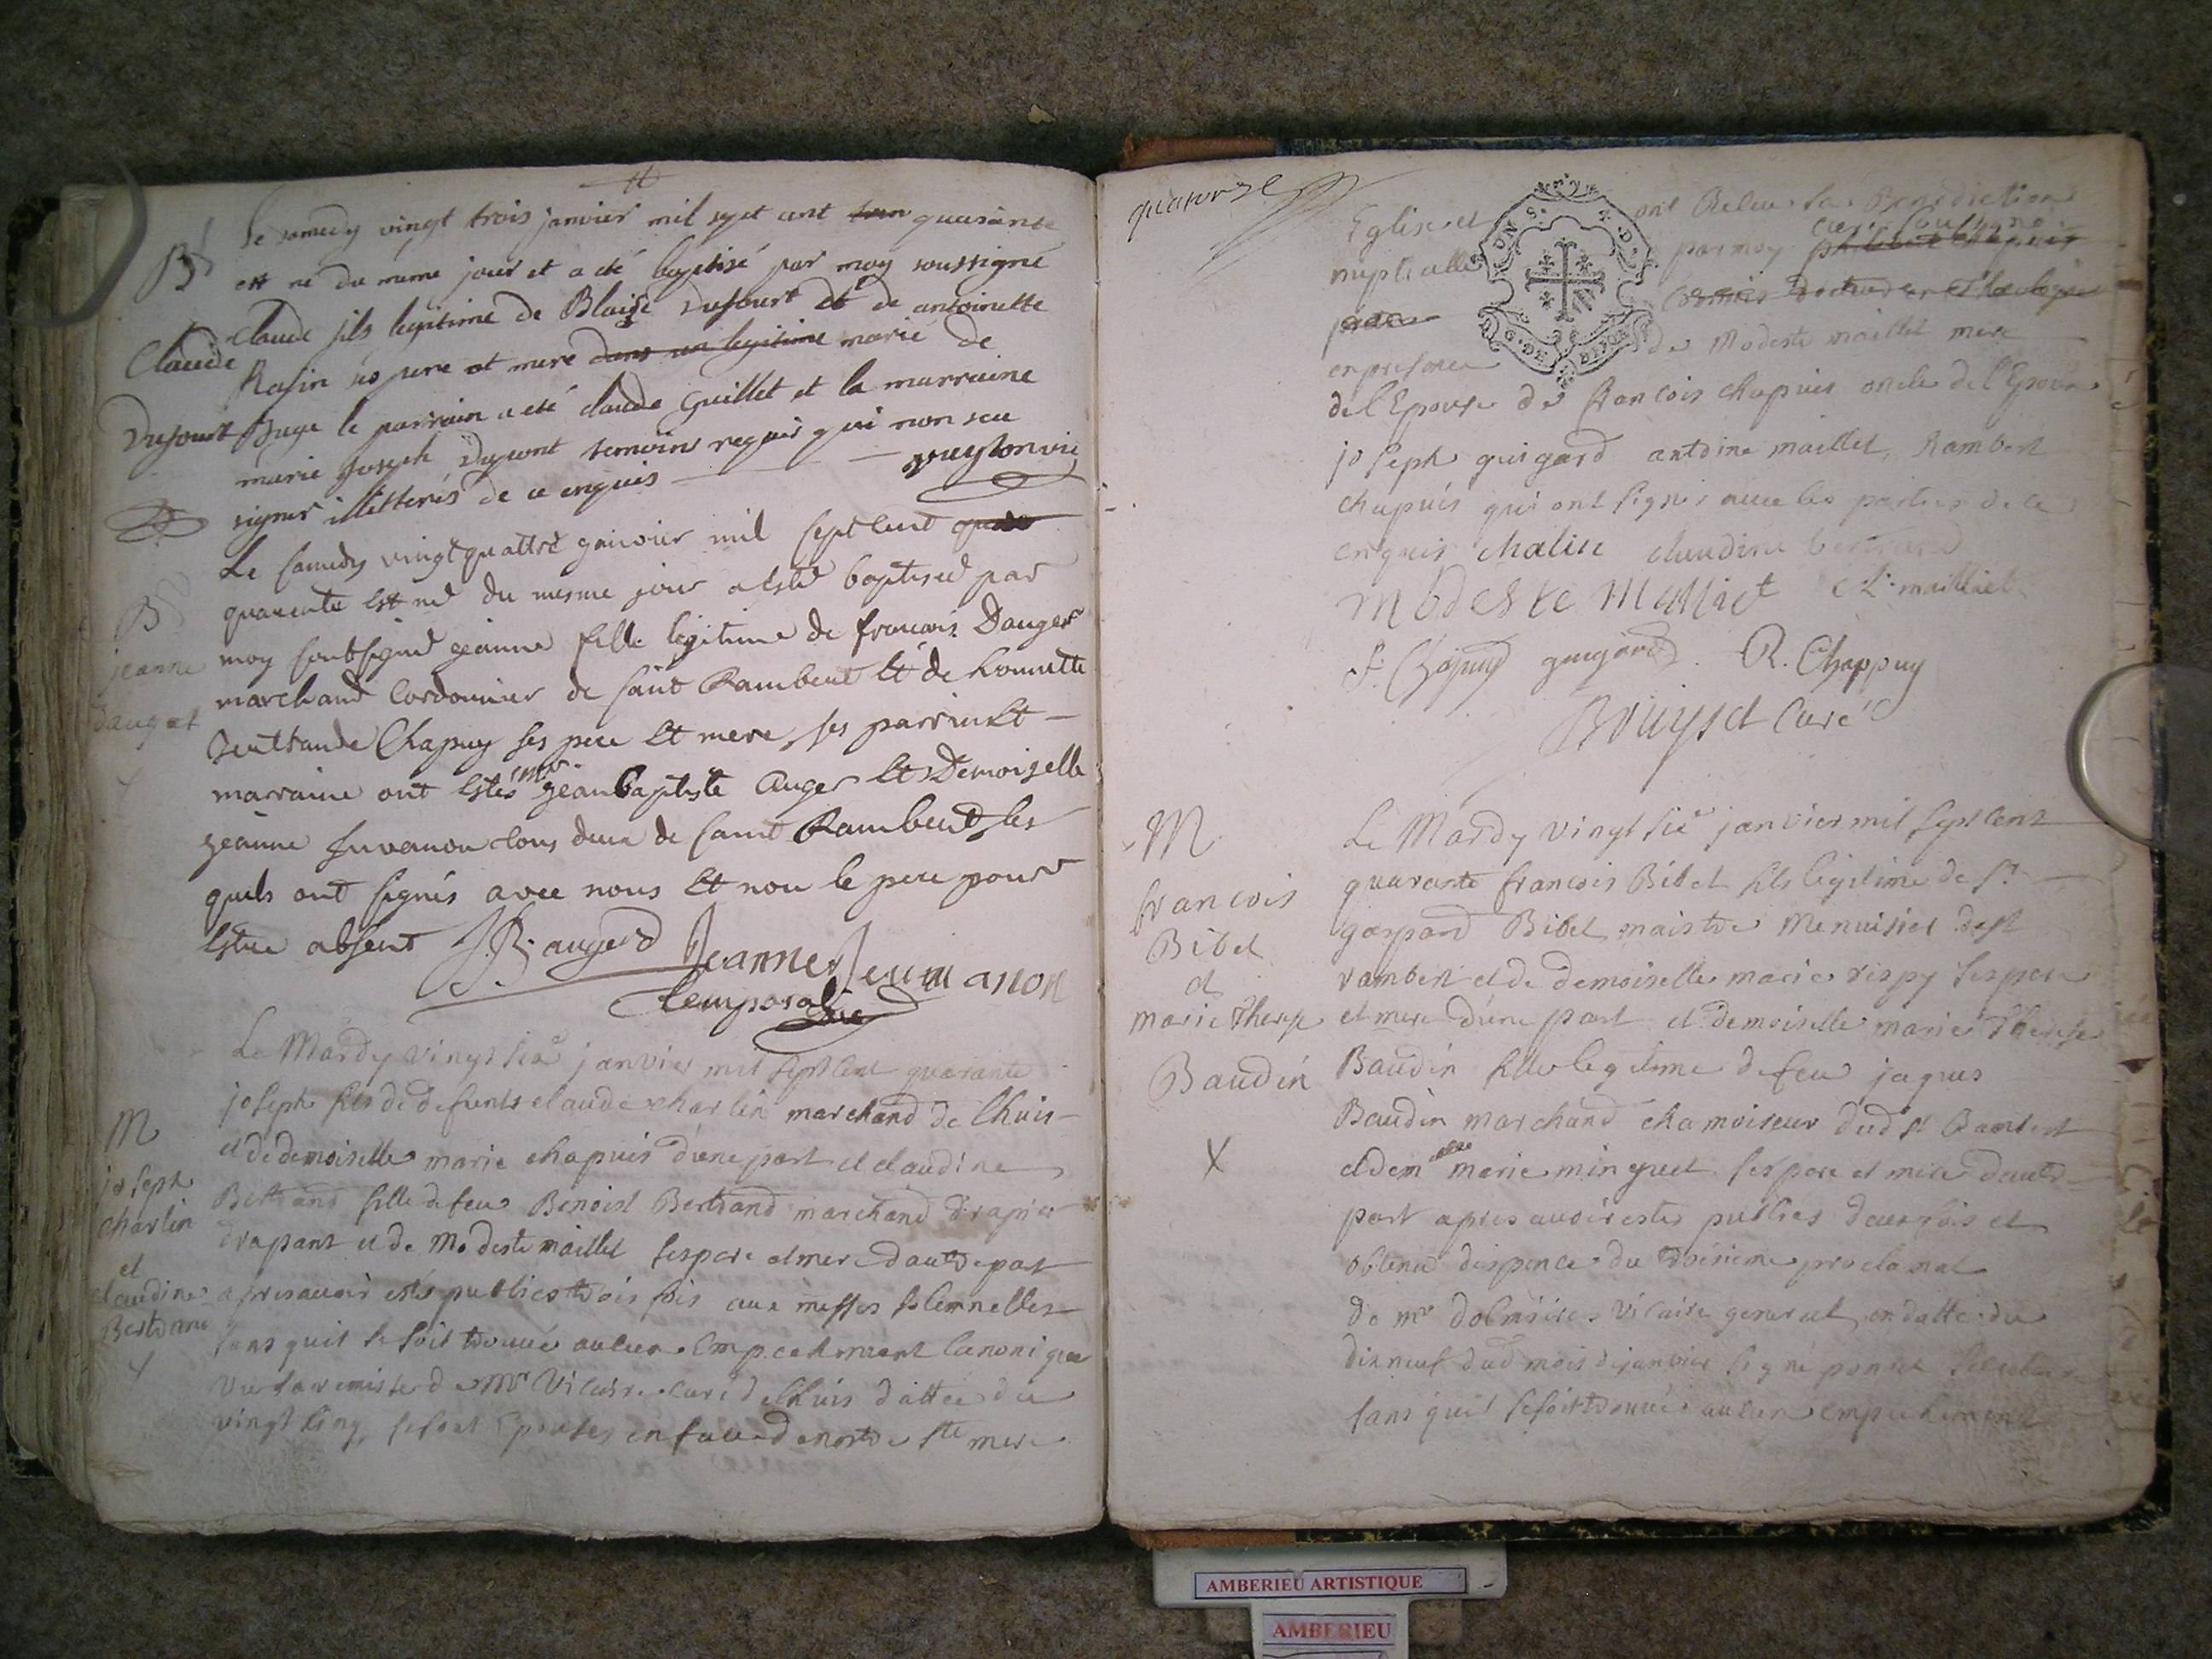 Bt
Claude
Dufourt
Le samedy vingt trois janvier mil sept cent quarante
est né du meme jour et a eté baptisé par moy soussigné
Claude fils legitime de Blaise Dufourt et de antoinette
Rasin ses pere et mere dans un legitime marié de
Buge le parrain a eté claude Guillet et la marraine
marie Joseph Dupont temoins requis qui non sceu
signer illetterés de ce enquis
B
jeanne
dauger
Le samedy vingt quattre ganvier mil sept cent
quarente Est né du mesme jour a Esté baptiseé par
moy soubsigné géanne fille légitime de francois Dauger
marchand Cordonnier de saint Rambert Et de honnette
Chapuy ses pere Et mere, ses parrin Et
marraine ont Estés mr gean Baptiste Auger Et Demoiselle
géanne tous deux de saint Rambert les
quels ont signés avec nous Et non le pere pour
Estre absent J.B. augerd Jeanne Jeuuanon
temporal vic
M
joseph
charlin
et
claudine
Bertrand
Le Mardy vingt sixe janvier mil sept cent quarante
joseph fils de defunts claude charlin marchand de lhuis
et de demoiselle marie chapuis d'une part et claudine
Bertrand fille de feu Benoist Bertrand marchand drapier
drapant et de Modeste maillet ses pere et mere dautre part
apres avoir estés publies trois fois aux messes solemnelles
sans quil se soit trouvé aucun Empechement Canonique
Vu la remise de Mr Vicaire curé de lhuis dattée du
vingt cinq, se sont Epousés en face de nostre ste mere
quatorze
Eglise et ont Receu la Benediction
nuptialle par moy curé soussigné
G. DE DIJON
en presence de Modeste maillet mere
de l'Epouse de francois chapuis oncle de l'Epoux
joseph guigard antoine maillet, Rambert
chapuis qui ont signés avec les parties de ce
enquis chalin claudine bertrand
Modeste Malliet Cl. mailliet
F. Chapuy guigard R. Chappuy
Brüyset Curé
M
francois
Bibet
et
marie Therese
Baudin
X
Le Mardy vingt sixe janvier mil sept cent
quarante francois Bibet fils legitime de sr
gaspard Bibet maistre Menuisier de st
rambert et de demoiselle marie rispy ses pere
et mere d'une part et demoiselle marie Therese
Baudin fille legitime de feu jaques
Baudin marchand chamoiseur dud st Rambert
et demelle marie minguet ses pere et mere dautre
part apres avoir estés publiés deux fois et
obtenu dispence du troisieme proclamat
de mr vicaire general en datte du
dix neuf dud mois de janvier signé
sans quil se soit trouvé aucun empechement
AMBERIEU ARTISTIQUE
AMBERIEU